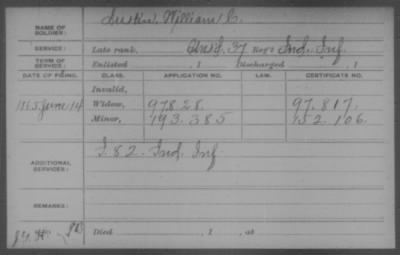 NAME OF SOLDIER: William C.
SERVICE: Late rank, 37 Reg't Ind. Inf.
TERM OF SERVICE: Enlisted , 1 Discharged , 1
DATE OF FILING. CLASS. APPLICATION NO. LAW. CERTIFICATE NO.
Invalid,
June 14 Widow, 97828 97.817
Minor, 193.385 152,106
ADDITIONAL SERVICES: I. 82. Ind. Inf
REMARKS:
Died , 1 , at